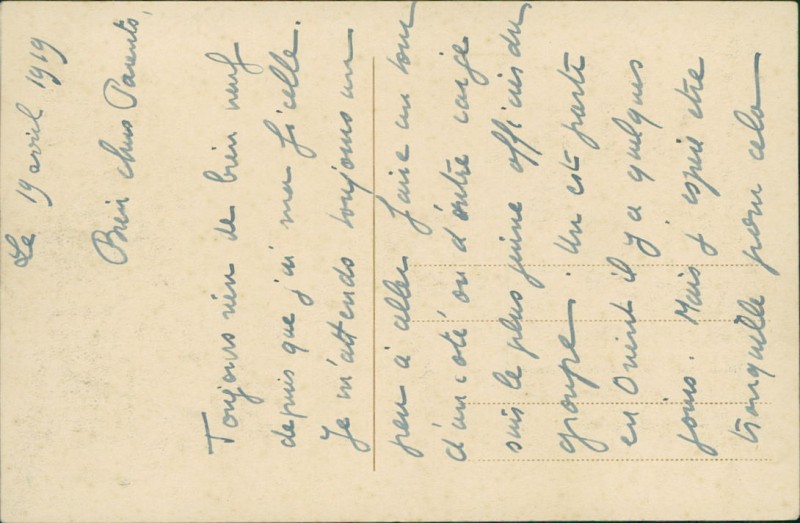 Le 19 avril 1919
Bien chers Parents,
Toujours rien de bien neuf
depuis que j'ai ma ficelle.
Je m'attends toujours un
peu à aller faire un tour
d'un côté ou d'outre car je
suis le plus jeune officier du
groupe. Un est parti
en Orient il y a quelques
jours. Mais j'espère être
tranquille pour cela